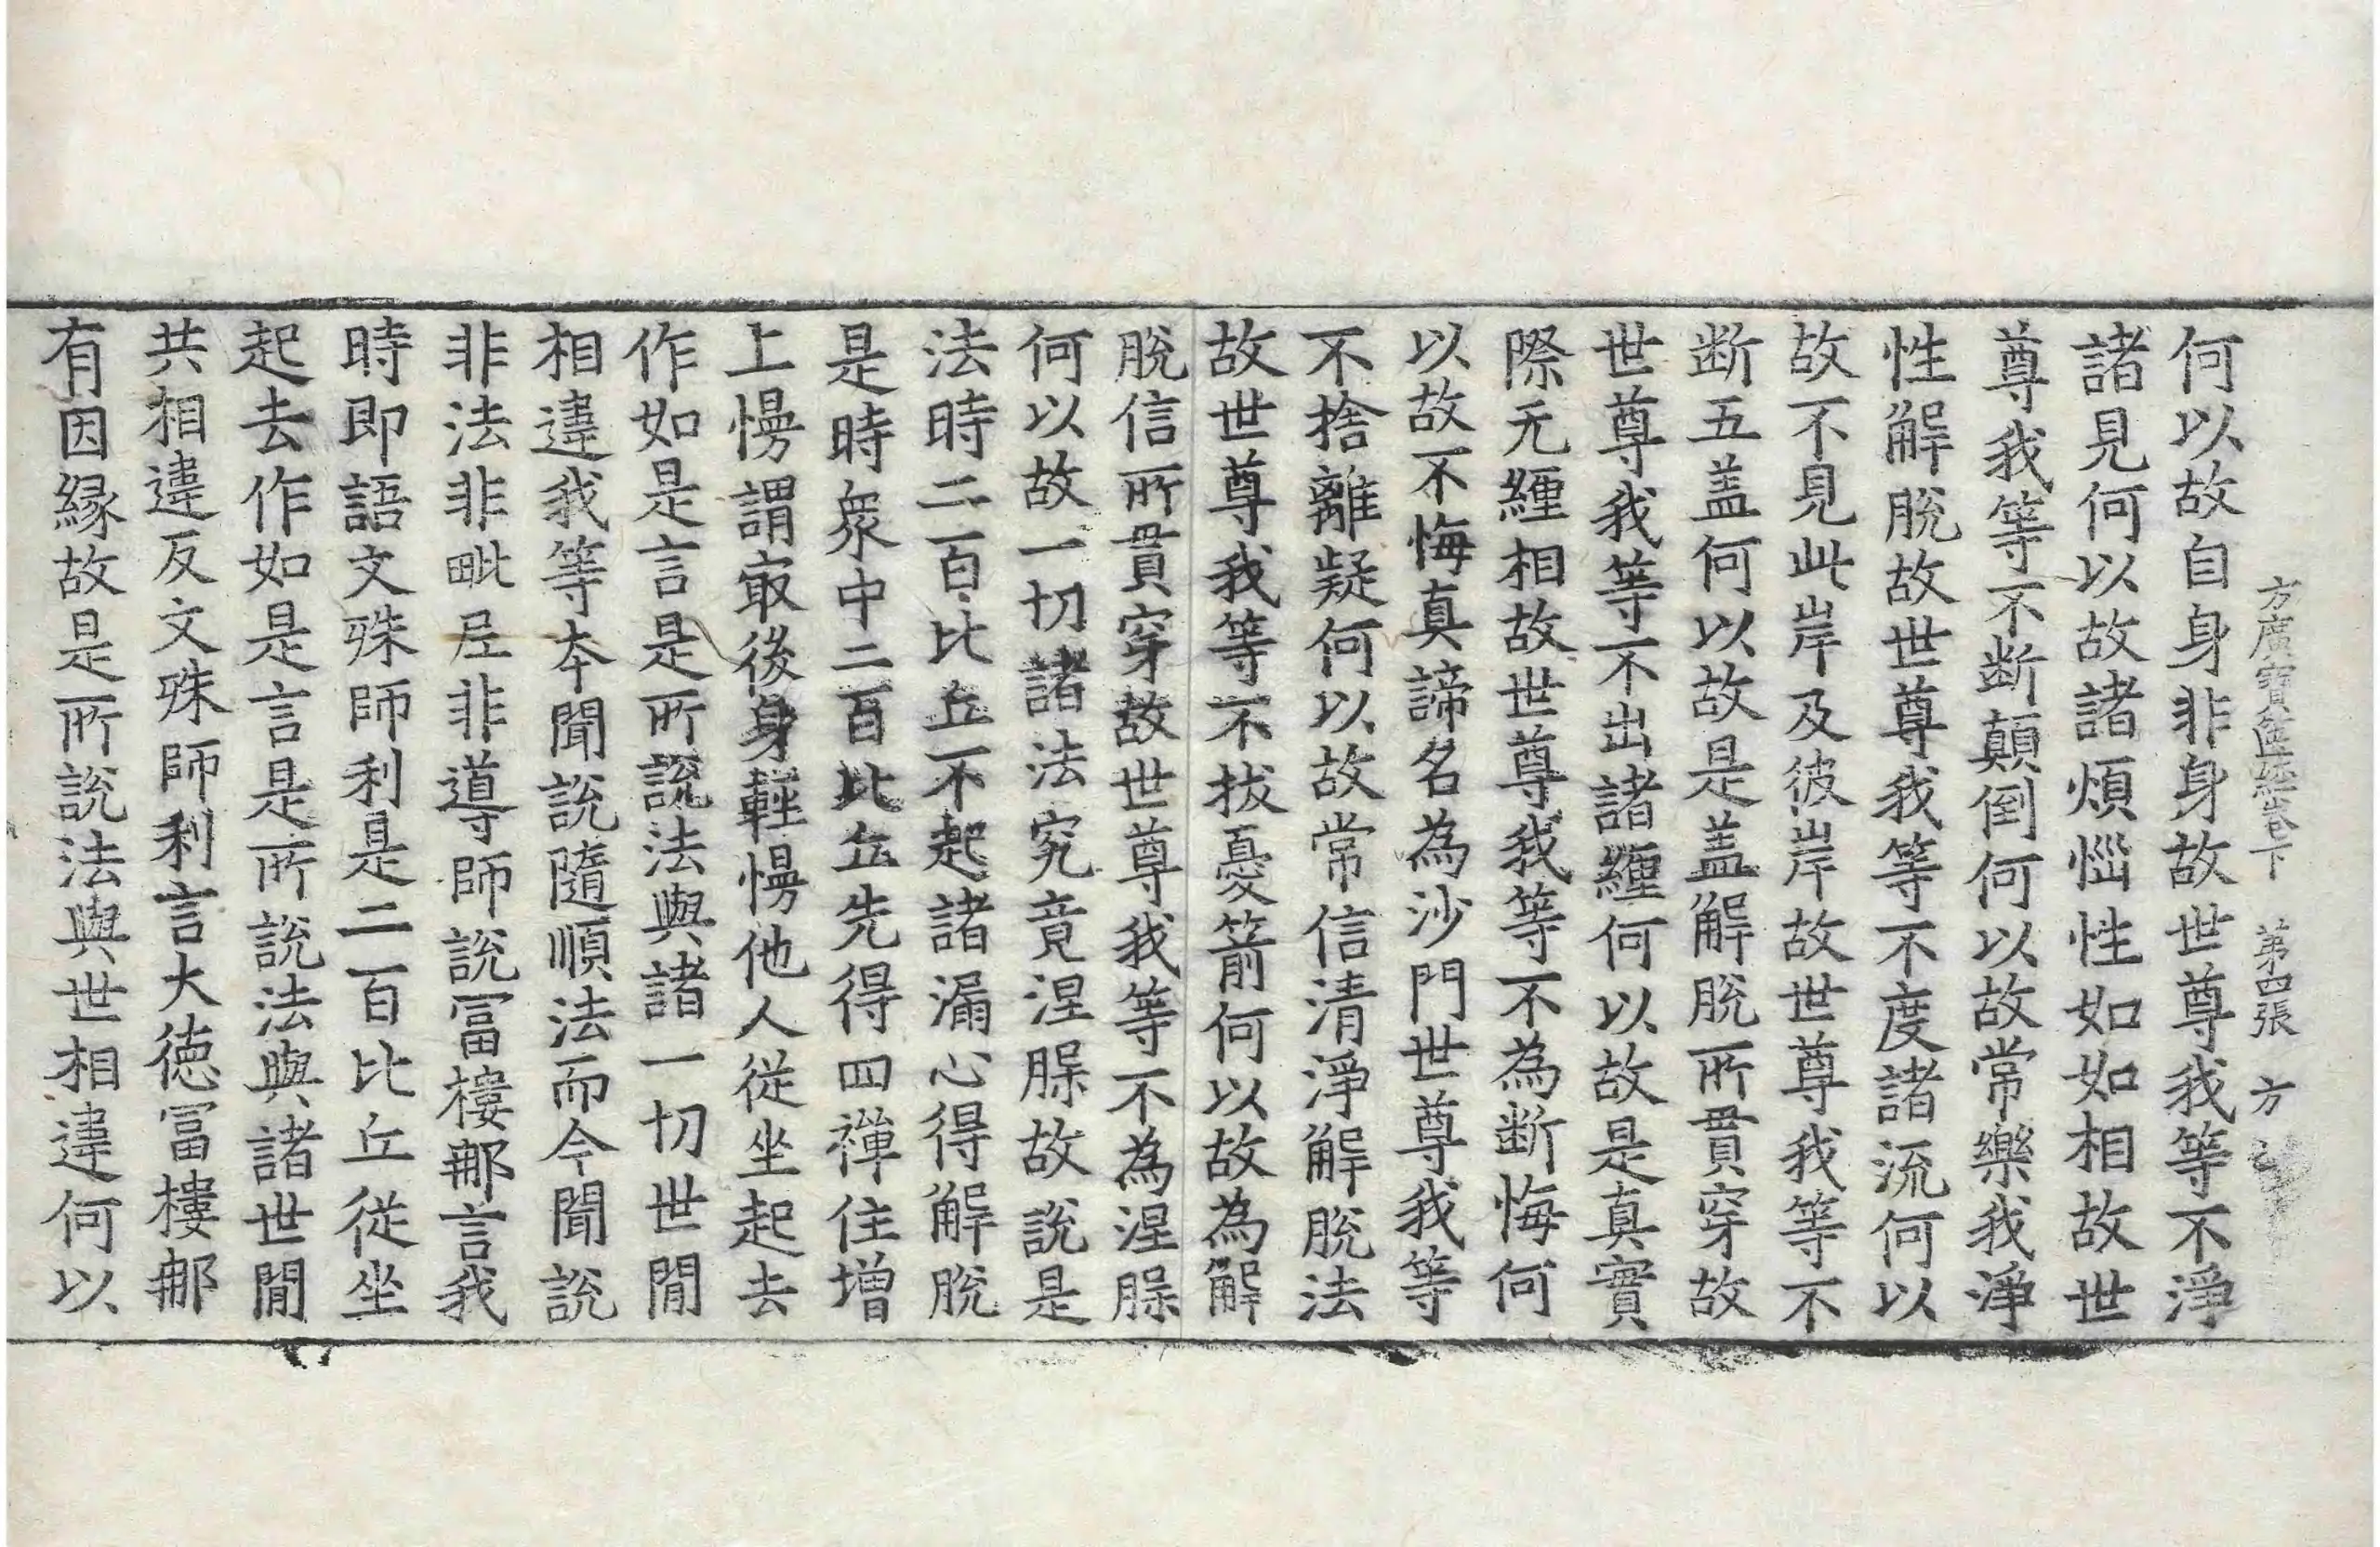 方廣寶篋經卷下　第四張　方
何以故自身非身故世尊我等不淨
諸見何以故諸煩惱性如如相故世
尊我等不断顛倒何以故常樂我淨
性解脫故世尊我等不度諸流何以
故不見此岸及彼岸故世尊我等不
断五盖何以故是盖解脫所貫穿故
世尊我等不出諸纏何以故是真實
際无纏相故世尊我等不為断悔何
以故不悔真諦名為沙門世尊我等
不捨離疑何以故常信清淨解脫法
故世尊我等不拔憂箭何以故為解
脫信所貫穿故世尊我等不為涅槃
何以故一切諸法究竟涅槃故說是
法時二百比丘不起諸漏心得解脫
是時衆中二百比丘先得四禪住增
上慢謂㝡後身輕慢他人從坐起去
作如是言是所說法與諸一切世間
相違我等本聞說隨順法而今聞說
非法非毗尼非導師說冨樓那言我
時即語文殊師利是二百比丘從坐
起去作如是言是所說法與諸世間
共相違反文殊師利言大德冨樓那
有因緣故是所說法與世相違何以